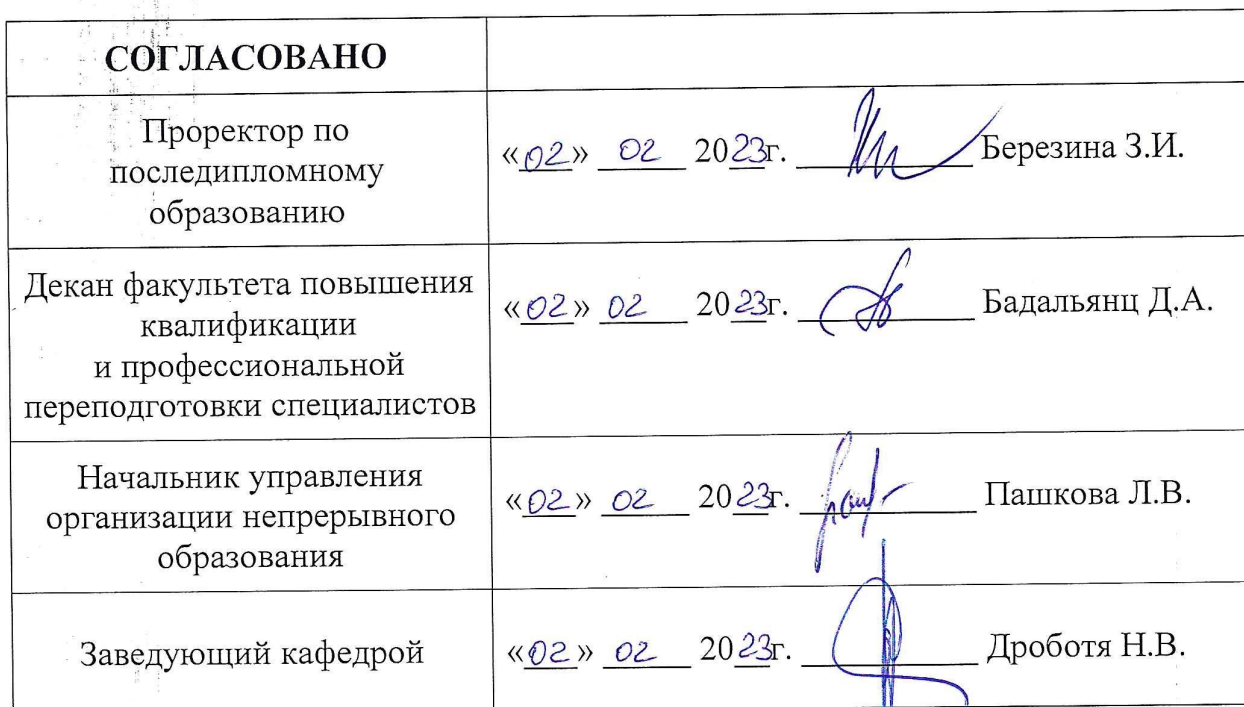 СОГЛАСОВАНО
Проректор по
последипломному
образованию
«02» 02 2023г. Березина З.И.
Декан факультета повышения
квалификации
и профессиональной
переподготовки специалистов
«02» 02 2023г. Бадальянц Д.А.
Начальник управления
организации непрерывного
образования
«02» 02 2023г. Пашкова Л.В.
Заведующий кафедрой
«02» 02 2023г. Дроботя Н.В.